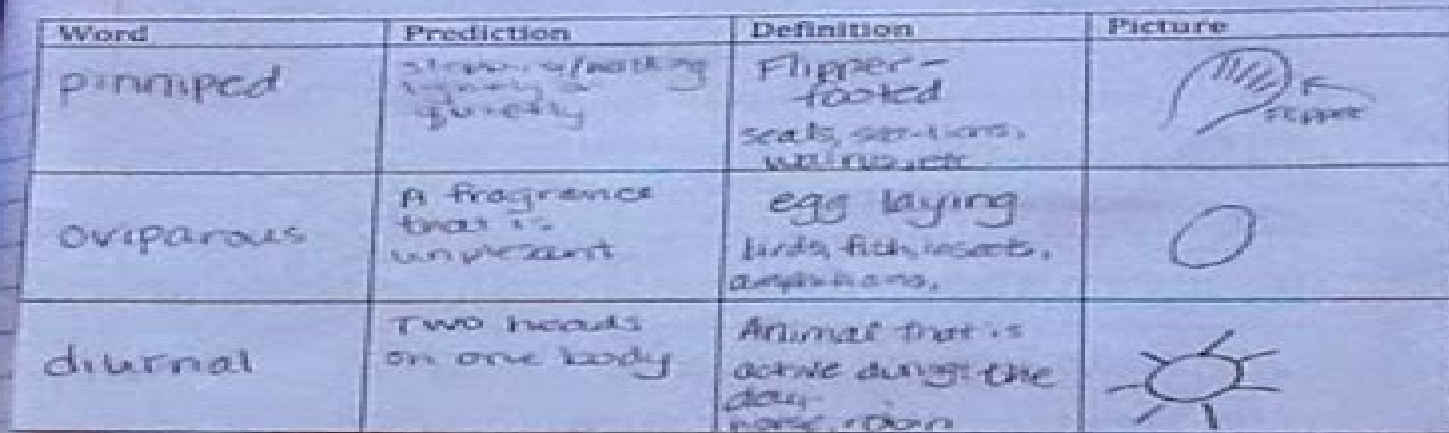 Word Prediction Definition Picture
pinniped
quietly
Flipper-
footed
seals, sea-lions,
walrus, etc
Flipper
oviparous
A fragrance
that is
unplesant
egg laying
birds, fish, insects,
diurnal
Two heads
on one body
Animal that is
active during the
day